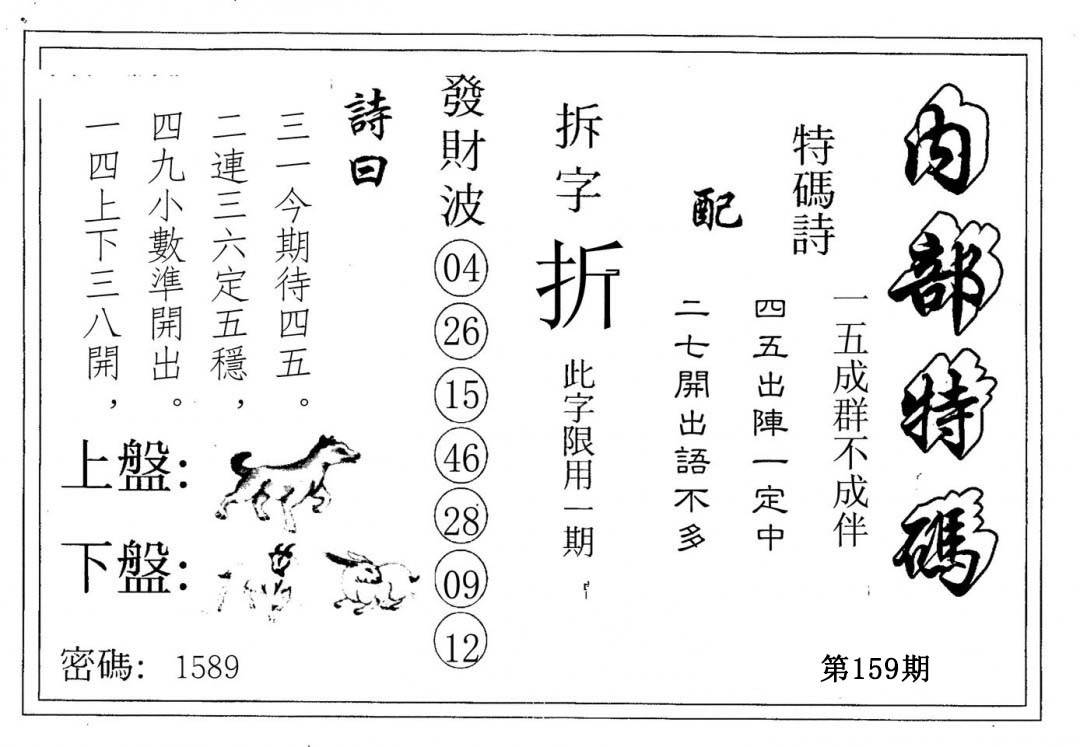 內部特碼
特碼詩
一五成群不成伴
四五出陣一定中
配
二七開出語不多
拆字
折
此字限用一期
發財波
04
26
15
46
28
09
12
詩曰
三一今期待四五。
二連三六定五穩，
四九小數準開出。
一四上下三八開，
上盤：
下盤：
密碼： 1589
第159期